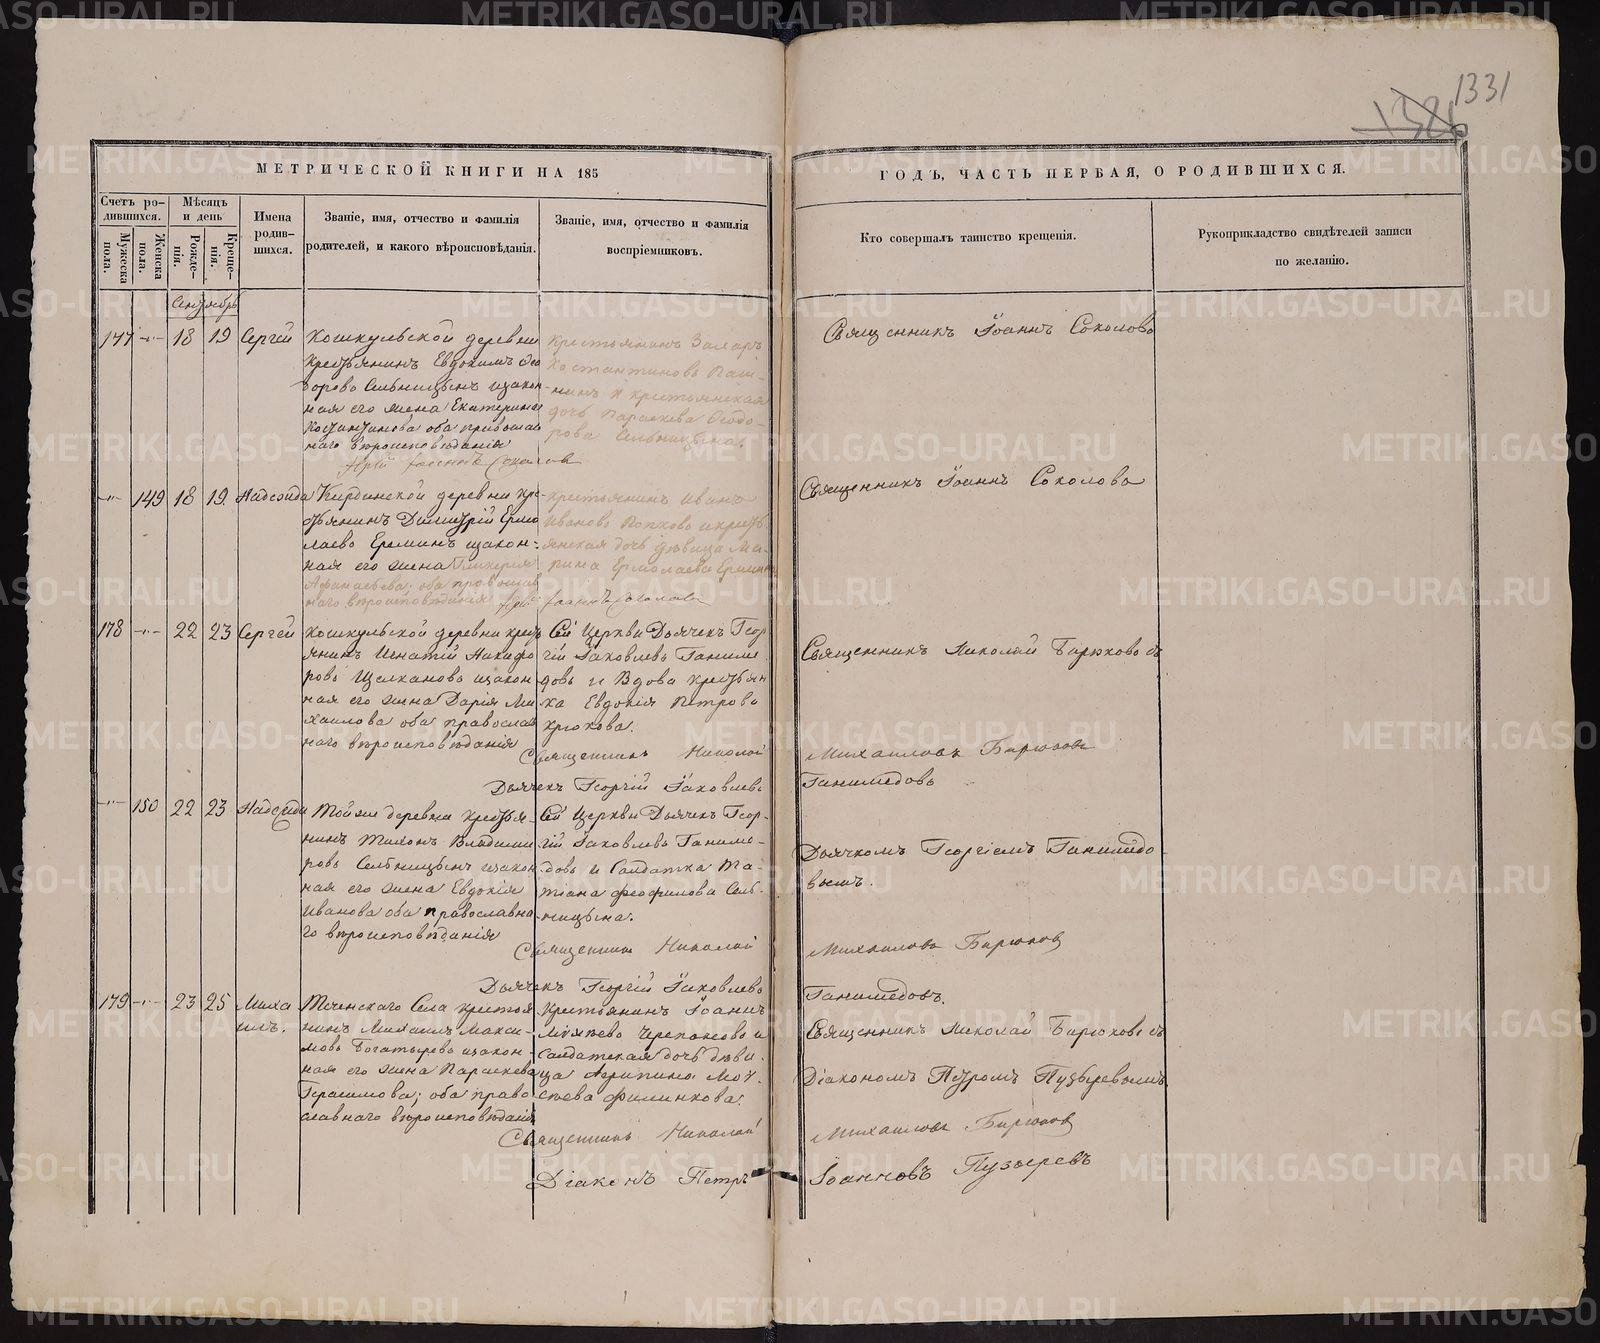 1326
1331
МЕТРИЧЕСКОЙ КНИГИ НА 185
ГОДЪ, ЧАСТЬ ПЕРВАЯ, О РОДИВШИХСЯ.
Счетъ родившихся.
Мужеска пола.
Женска пола.
Мѣсяцъ и день
Рожденія.
Крещенія.
Имена родившихся.
Званіе, имя, отчество и фамилія
родителей, и какого вѣроисповѣданія.
Званіе, имя, отчество и фамилія
воспріемниковъ.
Кто совершалъ таинство крещенія.
Рукоприкладство свидѣтелей записи
по желанію.
Сентябрь
177 18 19 Сергей
Кошкульской деревни
крестьянинъ Евдокимъ Ѳео
дорово Сельницынъ изакон
ная его жена Екатерина
Костантинова оба православ
наго вѣроисповѣданія
крестьянинъ Захаръ
Костантиново Паш-
нинъ и крестьянская
дочь Параскева Ѳеодо-
рова Сельницына.
Іерей Іоаннъ Соколов
Священникъ Іоаннъ Соколово
149 18 19 Надсжида
Кирдинской деревни кре-
стьянинъ Димитрій Ермо
лаево Ереминъ изакон-
ная его жена Гликерія
Афанасьева; оба православ
наго вѣроисповѣданія
крестьянинъ Иванъ
Иваново Попково и кресть
янская дочь дѣвица Ма-
рина Ермолаева Еремина
Іерей Іоаннъ Соколовъ
Священникъ Іоаннъ Соколово
178 22 23 Сергей
Кошкульской деревни кресть
янинъ Игнатій Никифо
ровъ Щелкановъ изакон
ная его жена Дарія Ми
хаилова оба православ
наго вѣроисповѣданія
Сей Церкви Дьячекъ Геор
гій Іаковлевъ Ганиме
довъ и Вдова крестьян
ка Евдокія Петрова
Крюкова.
Священникъ Николай
Михаиловъ Бирюковъ
Дьячекъ Георгій Іаковлевъ
Ганимедовъ
Священникъ Николай Бирюково съ
Дьячкомъ Георгіемъ Ганимедо
вымъ.
150 22 23 Надежда
Той же деревни крестья-
нинъ Тихонъ Владими
ровъ Сельницынъ изакон
ная его жена Евдокія
Иванова оба православна
го вѣроисповѣданія
Сей Церкви Дьячекъ Геор-
гій Іаковлевъ Ганиме-
довъ и Солдатка Та-
тіана Феофилова Сель-
ницына.
Священникъ Николай
Михаиловъ Бирюков
Дьячекъ Георгій Іаковлевъ
Ганимедовъ.
179 23 25 Миха
илъ.
Теченскаго Села крестья
нинъ Михаилъ Макси-
мовъ Богатырево изакон-
ная его жена Параскева
Герасимова; оба право
славнаго вѣроисповѣданія
Крестьянинъ Іоаннъ
Черепаново и
солдатская дочь дѣви-
ца Агрипина Мат-
сѣева Филинкова.
Священникъ Николай Бирюково съ
Діакономъ Петромъ Пузыревымъ
Священникъ Николай
Михаиловъ Бирюков
Діаконъ Петръ
Іоанновъ Пузыревъ
METRIKI.GASO-URAL.RU